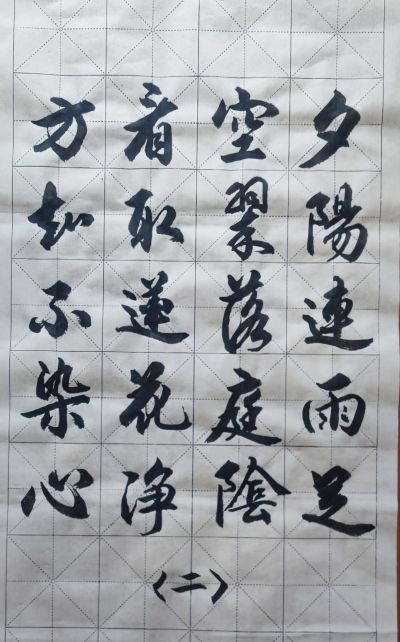 夕陽連雨足
空翠落庭陰
看取蓮花净
方知不染心
〈二〉